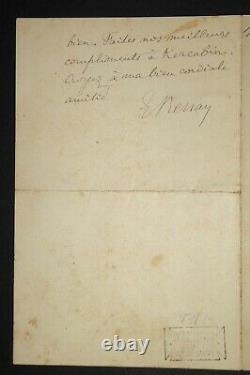 bien. Faites nos meilleurs
compliments à Kercabin.
Croyez à ma bien cordiale
amitié.
E Renan